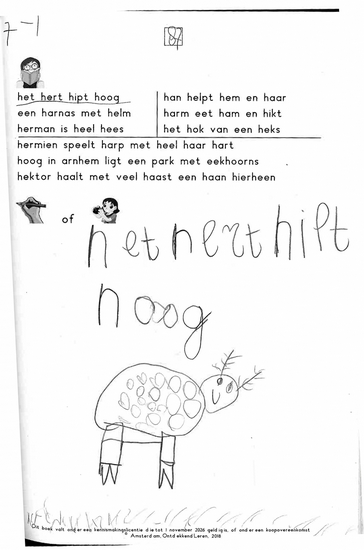 7-1
87
het hert hipt hoog
een harnas met helm
herman is heel hees
han helpt hem en haar
harm eet ham en hikt
het hok van een heks
hermien speelt harp met heel haar hart
hoog in arnhem ligt een park met eekhoorns
hektor haalt met veel haast een haan hierheen
of
het hert hipt
hoog
Dit boek valt onder een kennismakingslicentie die tot 1 november 2026 geldig is, of onder een koopovereenkomst
Amsterdam, Ontdekkend Leren, 2018